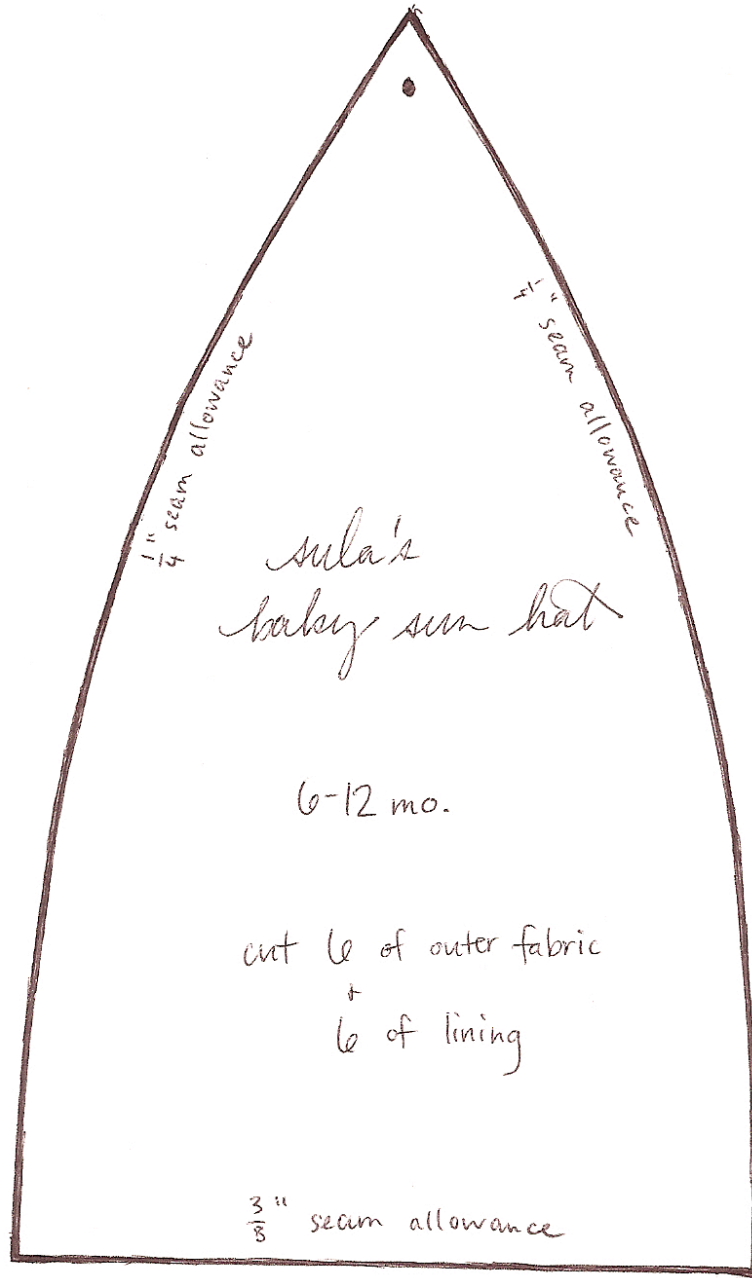 1/4" seam allowance
1/4" seam allowance
sula's
baby sun hat
6-12 mo.
cut 6 of outer fabric
+
6 of lining
3/8" seam allowance